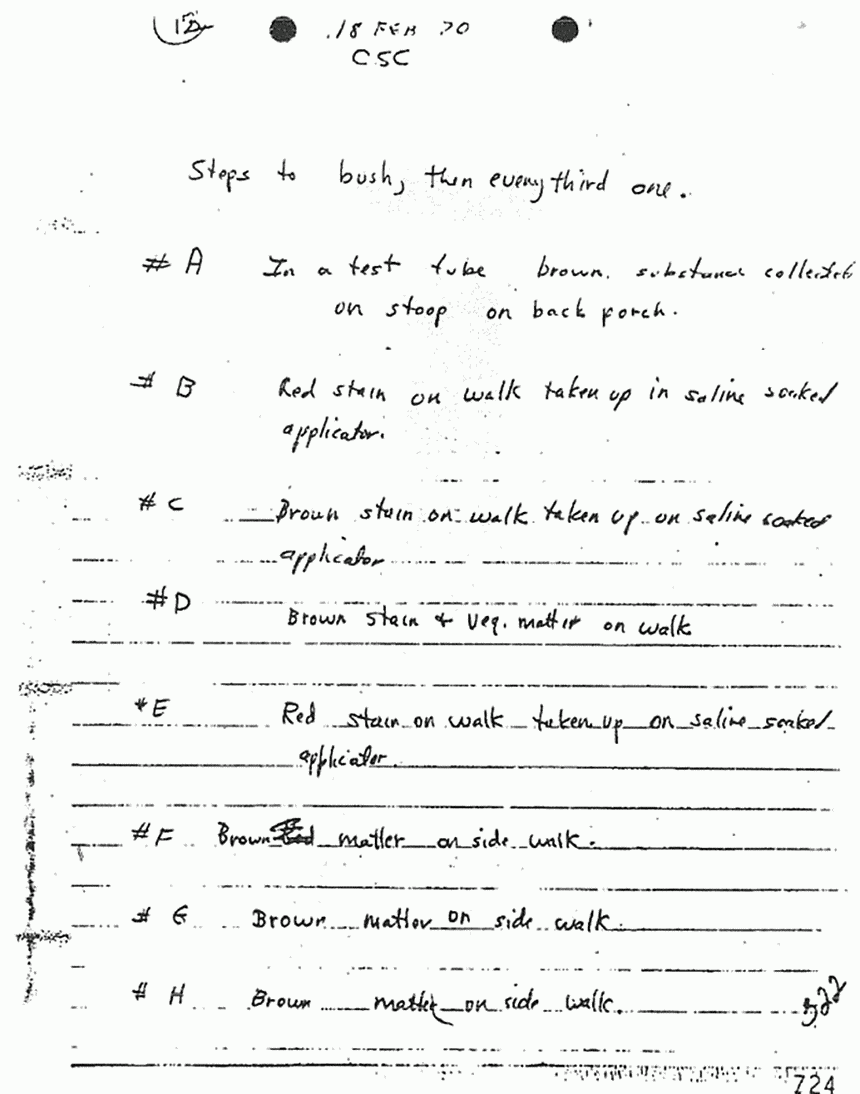 18 FEB 70
CSC
Steps to bush, then every third one.
# A In a test tube brown substance collected
on stoop on back porch.
# B Red stain on walk taken up in saline soaked
applicator.
# C Brown stain on walk taken up on saline soaked
applicator
# D Brown stain + veg. matter on walk
# E Red stain on walk taken up on saline soaked
applicator.
# F Brown matter on side walk.
# G Brown matter on side walk.
# H Brown matter on side walk.
522
724